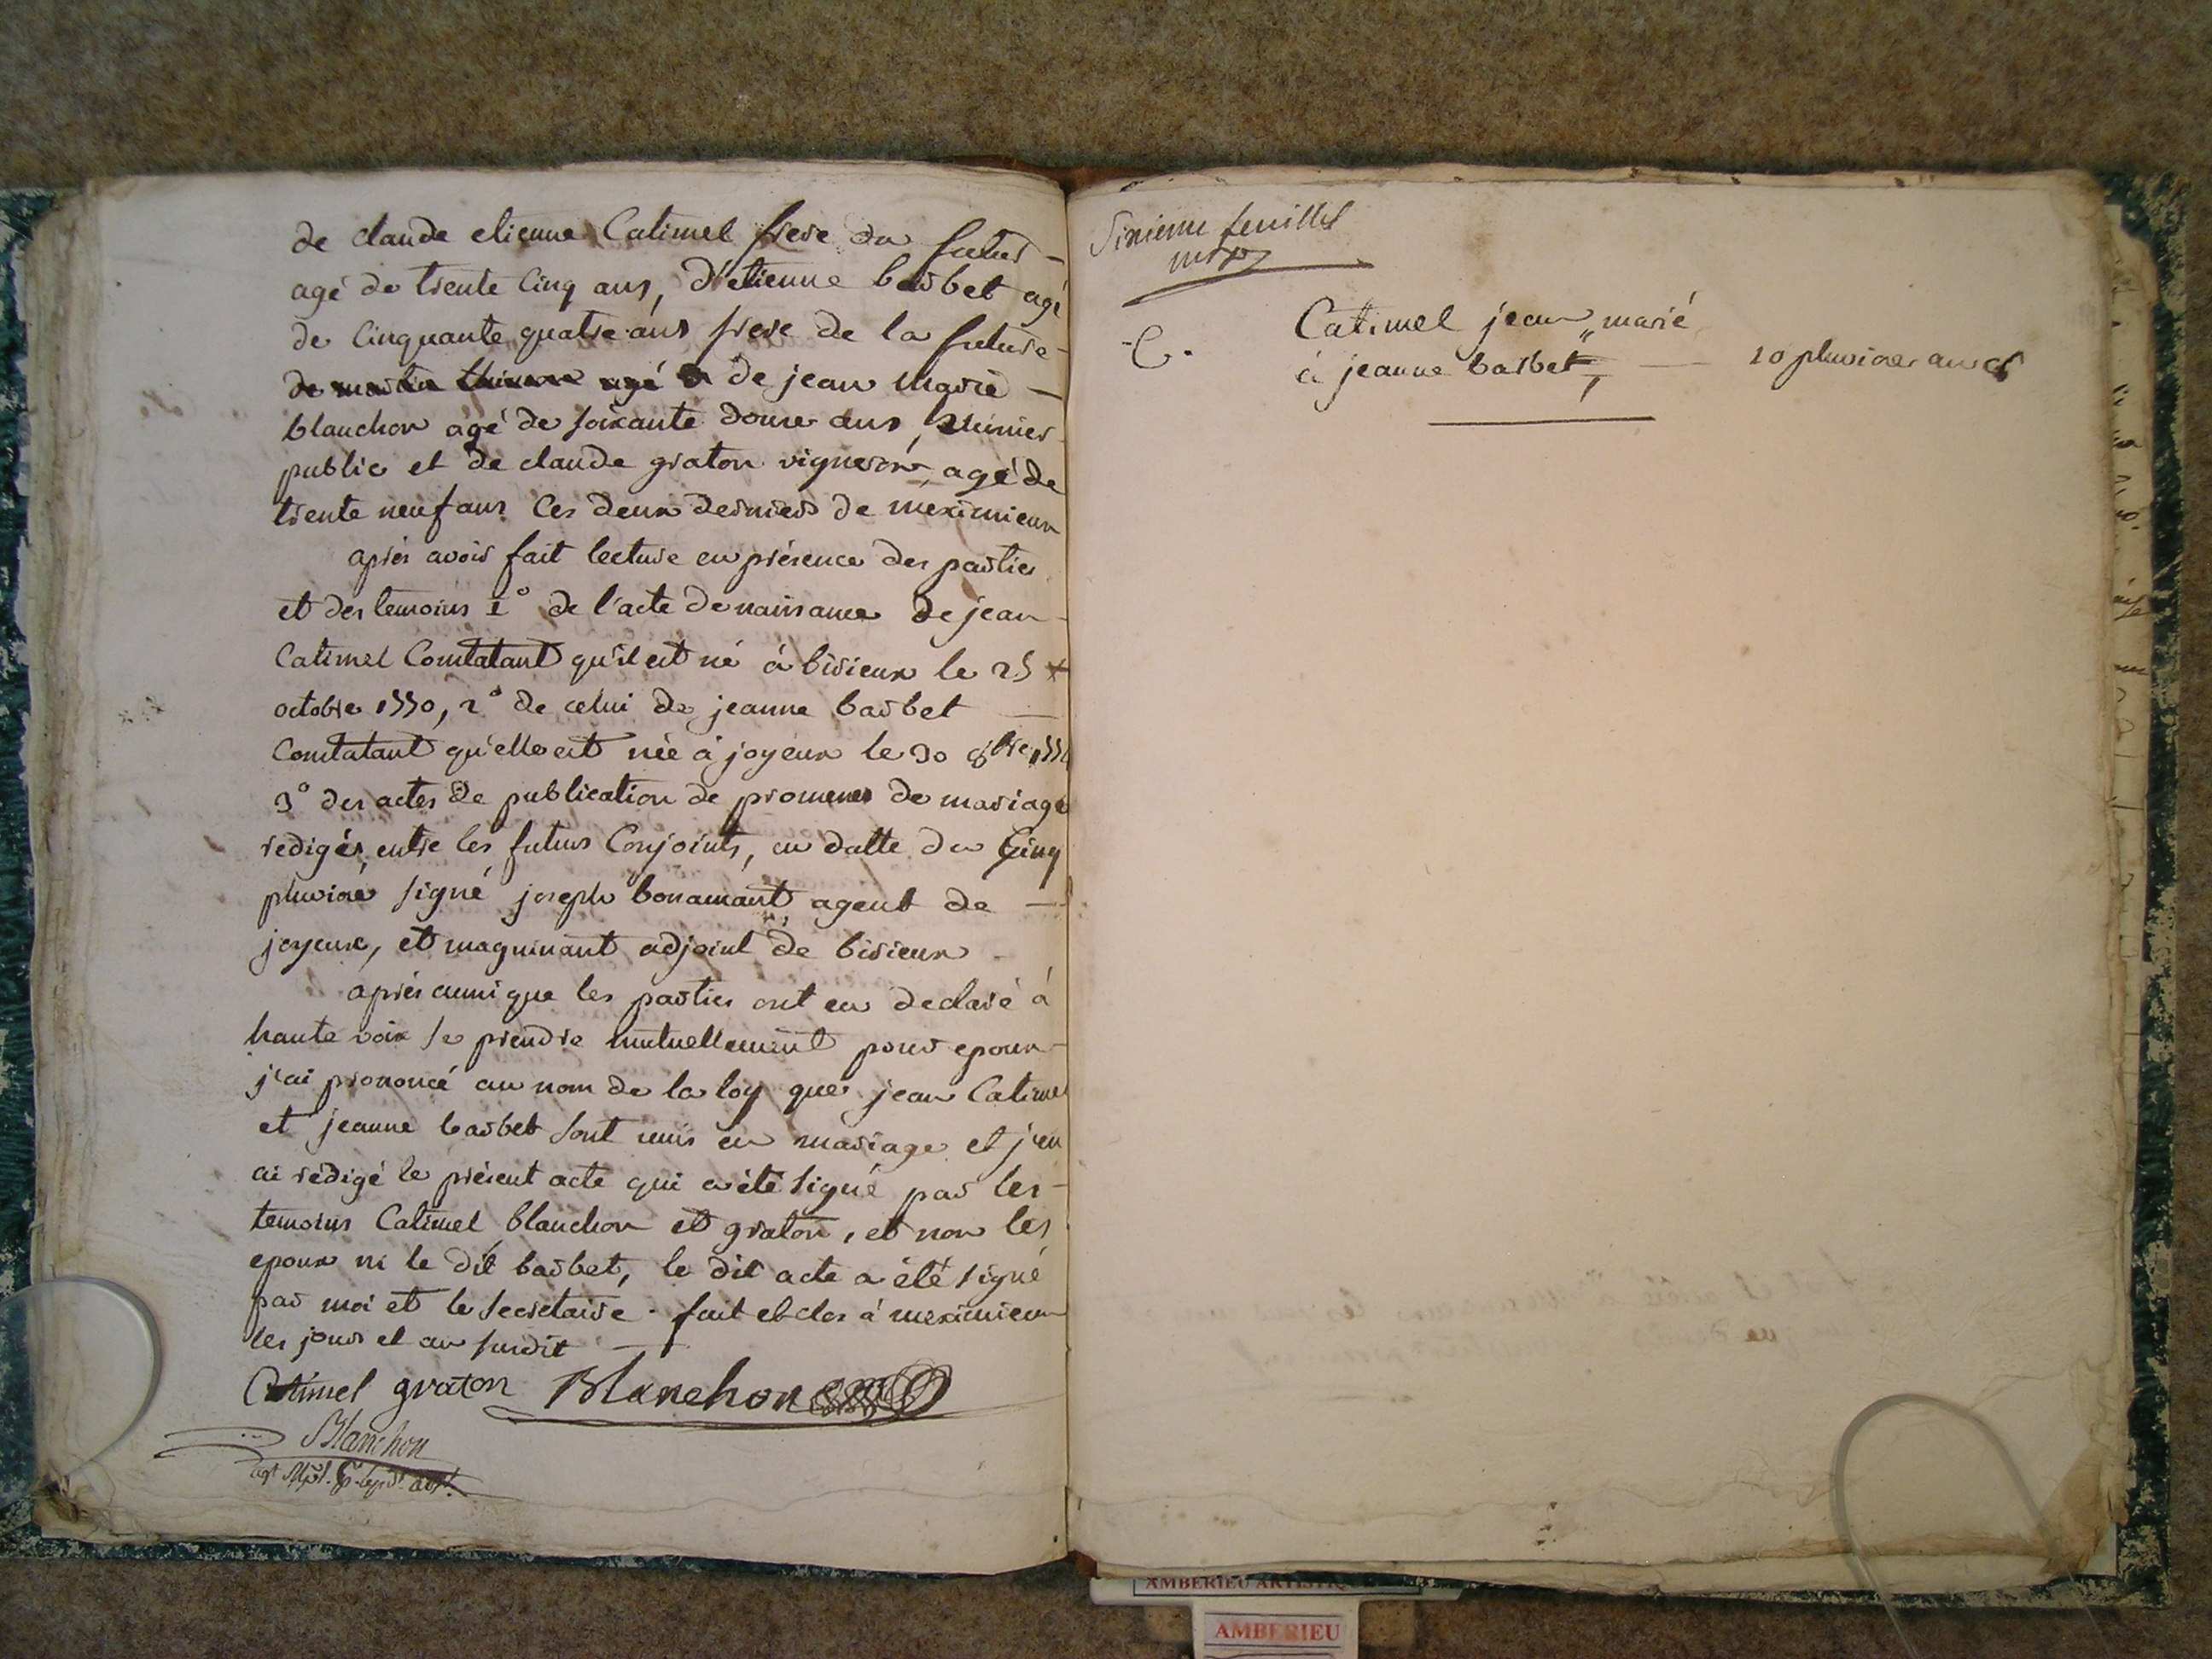 de claude etienne Catimel frere du futur -
agé de trente Cinq ans, d'etienne barbet agé
de Cinquante quatre ans frere de la future -
de jean marie -
blanchon agé de soixante douze ans,
public et de claude graton vigneron agé de
trente neuf ans Ces deux derniers de meximieux
après avoir fait lecture en présence des parties
et des temoins 1° de l'acte de naissance de jean
Catimel Constatant qu'il est né à birieux le 25
octobre 1770, 2° de celui de jeanne barbet
Constatant qu'elle est née à joyeux le 30 8bre
3° des actes de publication de promesses de mariage
redigés entre les futurs Conjoints, en datte du Cinq
pluviose signé joseph bonamant agent de
joyeux, et maguinant adjoint de birieux
après aussi que les parties ont eu declaré à
haute voix se prendre mutuellement pour epoux
j'ai prononcé au nom de la loy que jean Catimel
et jeanne barbet sont unis en mariage et j'en
ai rédigé le présent acte qui a été signé par les -
temoins Catimel blanchon et graton, et non les
epoux ni le dit barbet, le dit acte a été signé
par moi et le secretaire. fait et clos à meximieux
les jour et an susdit
Catimel graton Blanchon
Blanchon
Sixieme feuillet
C.
Catimel jean marié
à jeanne barbet, 10 pluviose an
AMBERIEU ARTISTIQ
AMBERIEU